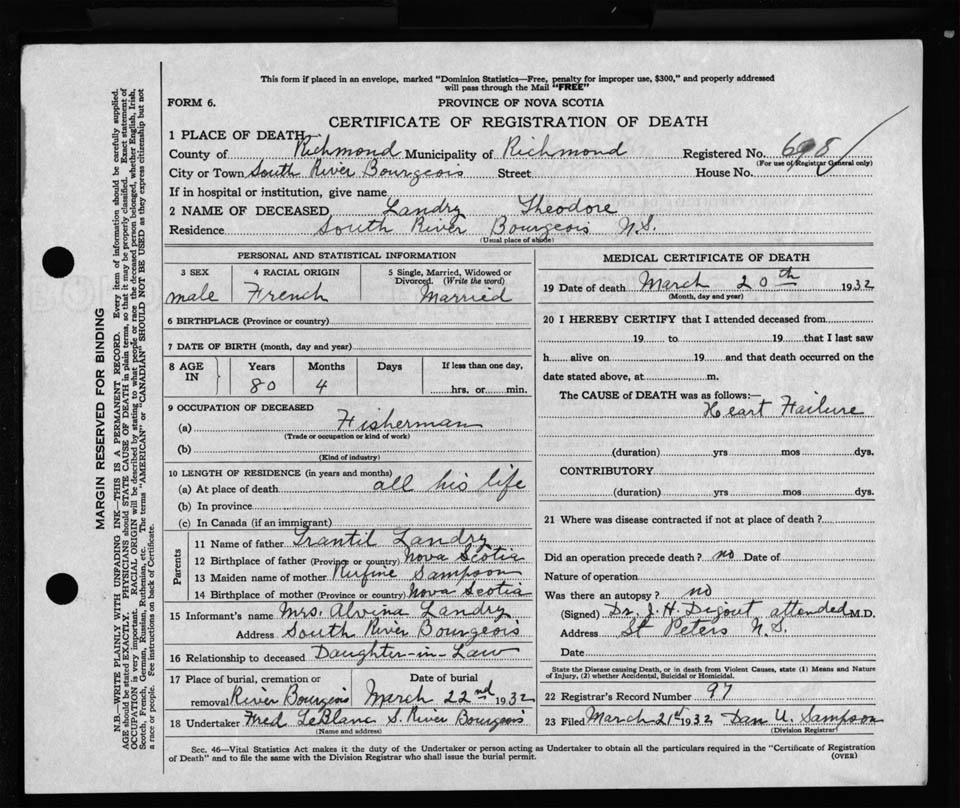 This form if placed in an envelope, marked "Dominion Statistics—Free, penalty for improper use, $300," and properly addressed
will pass through the Mail "FREE"
FORM 6.
PROVINCE OF NOVA SCOTIA
CERTIFICATE OF REGISTRATION OF DEATH
1 PLACE OF DEATH—
County of Richmond Municipality of Richmond Registered No. 698
(For use of Registrar General only)
City or Town South River Bourgeois Street House No.
If in hospital or institution, give name
2 NAME OF DECEASED Landry Theodore
Residence South River Bourgeois N.S.
(Usual place of abode)
MARGIN RESERVED FOR BINDING
N.B.—WRITE PLAINLY WITH UNFADING INK—THIS IS A PERMANENT RECORD. Every item of information should be carefully supplied.
AGE should be stated EXACTLY. PHYSICIANS should STATE CAUSE OF DEATH in plain terms, so that it may be properly classified. Exact statement of
OCCUPATION is very important. RACIAL ORIGIN will be described by stating to what people or race the deceased person belonged, whether English, Irish,
Scotch, French, German, Russian, Ruthenian, etc. The terms "AMERICAN" or "CANADIAN" SHOULD NOT BE USED as they express citizenship but not
a race or people. See instructions on back of Certificate.
PERSONAL AND STATISTICAL INFORMATION
3 SEX 4 RACIAL ORIGIN 5 Single, Married, Widowed or
Divorced. (Write the word)
male French Married
6 BIRTHPLACE (Province or country)
7 DATE OF BIRTH (month, day and year)
8 AGE IN Years Months Days If less than one day,
80 4 hrs. or min.
9 OCCUPATION OF DECEASED
(a) Fisherman
(Trade or occupation or kind of work)
(b)
(Kind of industry)
10 LENGTH OF RESIDENCE (in years and months)
(a) At place of death all his life
(b) In province
(c) In Canada (if an immigrant)
Parents
11 Name of father Trantil Landry
12 Birthplace of father (Province or country) Nova Scotia
13 Maiden name of mother Rufine Sampson
14 Birthplace of mother (Province or country) Nova Scotia
15 Informant's name Mrs. Alvina Landry
Address South River Bourgeois
16 Relationship to deceased Daughter-in-Law
17 Place of burial, cremation or Date of burial
removal River Bourgeois March 22nd 1932
18 Undertaker Fred LeBlanc S. River Bourgeois
(Name and address)
MEDICAL CERTIFICATE OF DEATH
19 Date of death March 20th 1932
(Month, day and year)
20 I HEREBY CERTIFY that I attended deceased from
19 to 19 that I last saw
h alive on 19 and that death occurred on the
date stated above, at m.
The CAUSE of DEATH was as follows:—
Heart Failure
(duration) yrs mos dys.
CONTRIBUTORY
(duration) yrs mos dys.
21 Where was disease contracted if not at place of death?
Did an operation precede death? no Date of
Nature of operation
Was there an autopsy? no
(Signed) Dr. J. H. Digout attended M.D.
Address St Peters N.S.
Date
State the Disease causing Death, or in death from Violent Causes, state (1) Means and Nature
of Injury, (2) whether Accidental, Suicidal or Homicidal.
22 Registrar's Record Number 97
23 Filed March 21st 1932 Dan U. Sampson
(Division Registrar)
Sec. 46—Vital Statistics Act makes it the duty of the Undertaker or person acting as Undertaker to obtain all the particulars required in the "Certificate of Registration
of Death" and to file the same with the Division Registrar who shall issue the burial permit.
(OVER)